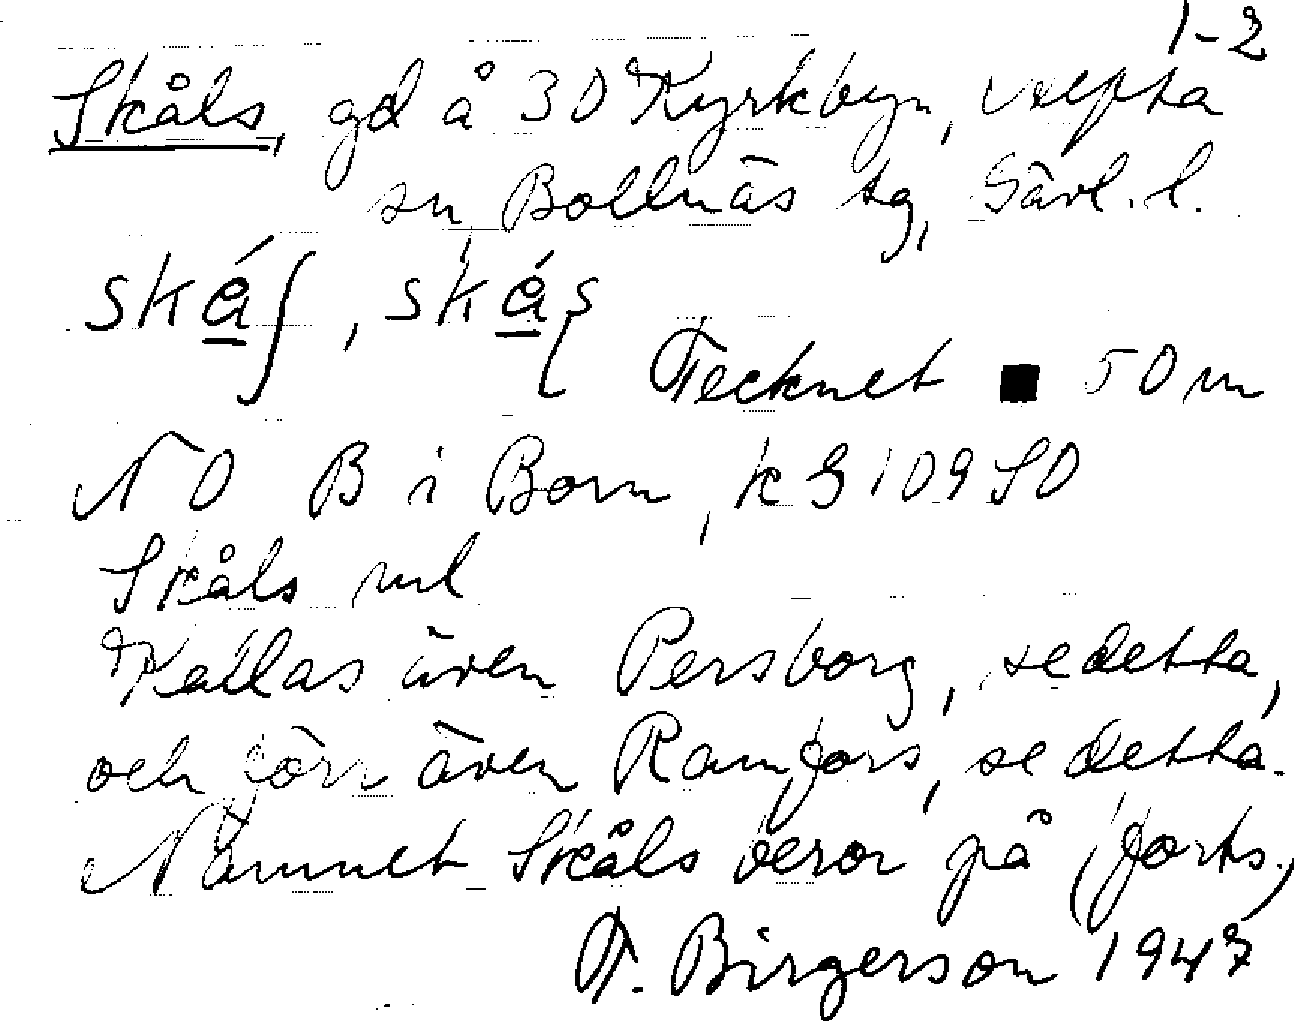 1-2
Skåls, gd å 30 Kyrkbyn, Alfta
sn, Bollnäs tg, Gävl. l.
Tecknet ■ 50 m
NO B i Born, k G 109 SO
Skåls rul
Kallas även Persborg, se detta,
och förr även Ramfors, se detta.
Namnet Skåls beror på (forts.)
F. Birgerson 1947